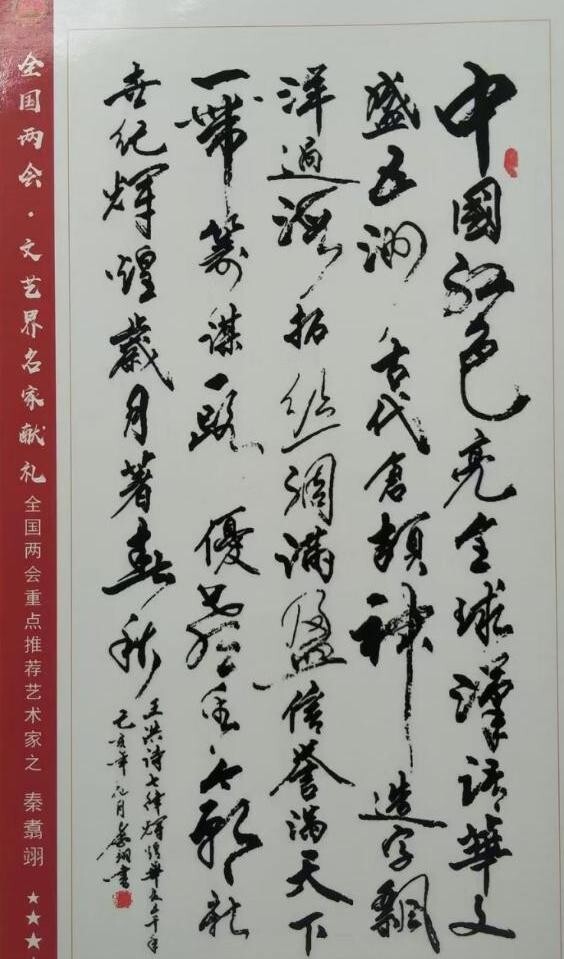 中國红色亮全球漢語華文
盛五洲古代倉頡神造字飄
洋過海拓丝綢满盈信誉满天下
一帶筹谋一路優
世纪辉煌歲月著春秋
王洪诗七律辉煌華文五千年
己亥年九月翊书
全国两会·文艺界名家献礼
全国两会重点推荐艺术家之 秦翥翊